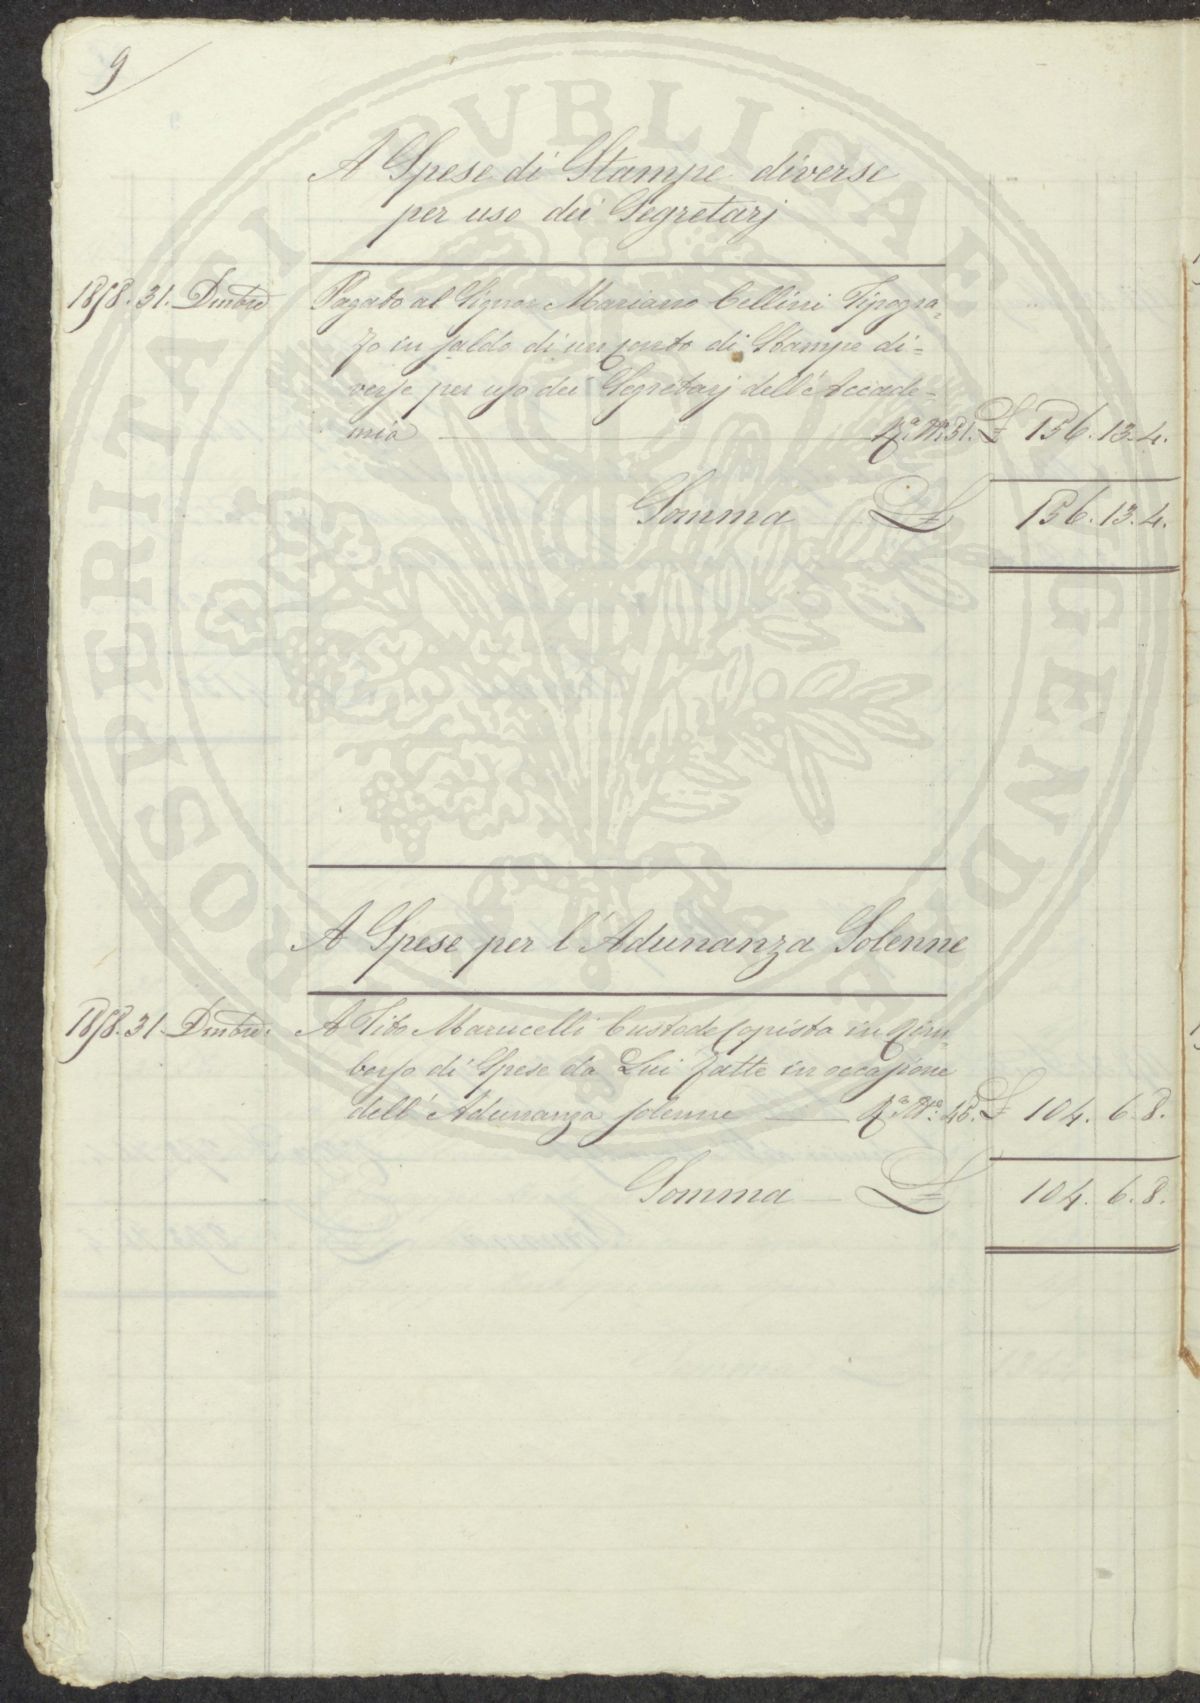 9
A Spese di Stampe diverse
per uso dei Segretarj
1858. 31. Dmbre Pagato al Signor Mariano Cellini Tipogra-
fo in saldo di un conto di Stampe di-
verse per uso dei Segretarj dell'Accade-
mia Ra. No. 31. £ 156. 13. 4.
Somma £ 156. 13. 4.
A Spese per l'Adunanza Solenne
1858. 31 Dmbre. A Tito Marucelli Custode Copista in Rim-
borso di Spese da Lui fatte in occasione
dell'Adunanza solenne Ra. No. 45. £ 104. 6. 8.
Somma £ 104. 6. 8.
PROSPERITATI PUBLICAE AUGENDAE